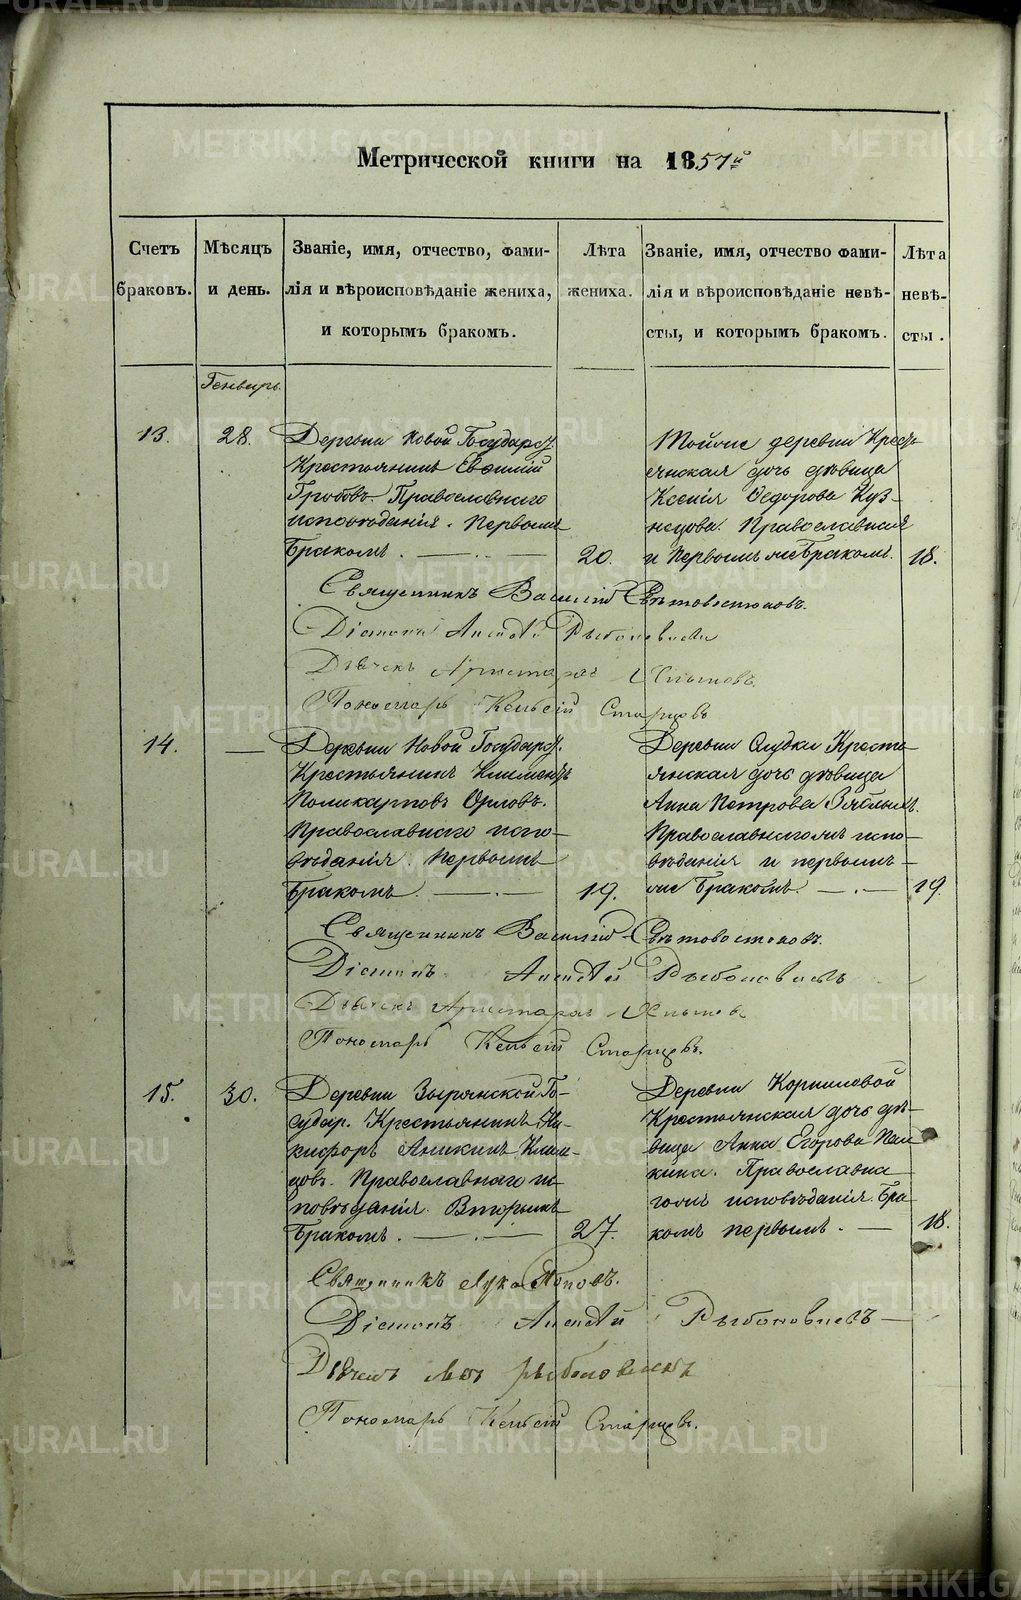 Метрической книги на 1857й
Счетъ браковъ.
Мѣсяцъ и день.
Званіе, имя, отчество, фами-
лія и вѣроисповѣданіе жениха,
и которымъ бракомъ.
Лѣта жениха.
Званіе, имя, отчество фами-
лія и вѣроисповѣданіе невѣ-
сты, и которымъ бракомъ.
Лѣта невѣ-
сты.
Генварь
13. 28. Деревни Новой Государ.
Крестьянинъ
Гробовъ Православнаго
исповѣданія. Первымъ
Бракомъ. 20.
Тойже деревни Крест-
янская дочь дѣвица
Ксенія Ѳедорова Куз-
нецова. Православная
и Первымъ же Бракомъ. 18.
Священникъ Василій Свѣтовостоковъ.
Діаконъ Рыболовлевъ
Дьячекъ Аристархъ
Пономарь Старцовъ
14. — Деревни Новой Государ.
Крестьянинъ Климентъ
Поликарповъ Орловъ.
Православнаго испо-
вѣданія. Первымъ
Бракомъ. 19.
Деревни Слудки Кресть-
янская дочь дѣвица
Анна Петрова
Православнагожъ испо-
вѣданія и первымъ-
же Бракомъ 19.
Священникъ Василій Свѣтовостоковъ.
Діаконъ Рыболовлевъ
Дьячекъ Аристархъ
Пономарь Старцовъ.
15. 30. Деревни Зырянской Го-
судар. Крестьянинъ Ни-
кифоръ Аникинъ Клим-
цовъ. Православнаго ис-
повѣданія. Вторымъ
Бракомъ. 27.
Деревни Корниловой
Крестьянская дочь дѣ-
вица Анна Егорова Пал-
кина. Православна
гоже исповѣданія. Бра-
комъ первымъ. 18.
Священникъ Лука Поповъ.
Діаконъ Рыболовлевъ
Дьячекъ Рыболовлевъ
Пономарь Старцовъ.
METRIKI.GASO-URAL.RU